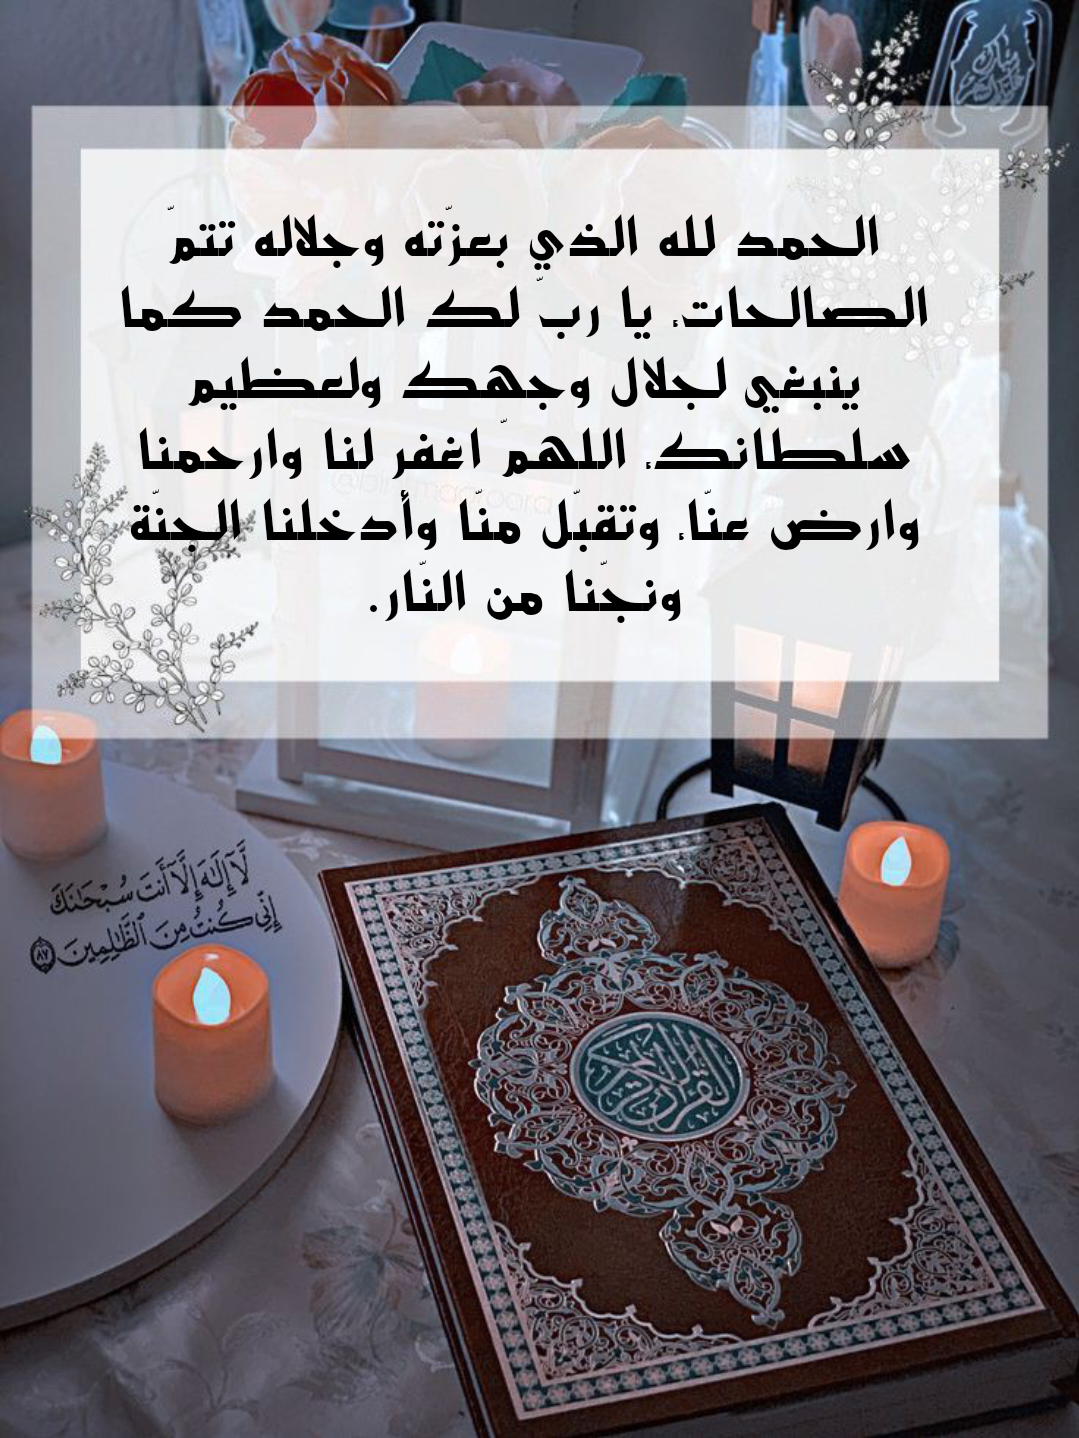 الحمد لله الذي بعزّته وجلاله تتمّ
الصالحات، يا ربّ لك الحمد كما
ينبغي لجلال وجهك ولعظيم
سلطانك، اللهمّ اغفر لنا وارحمنا
وارض عنّا، وتقبّل منّا وأدخلنا الجنّة
ونجّنا من النّار.
لَّآ إِلَٰهَ إِلَّآ أَنتَ سُبْحَٰنَكَ
إِنِّى كُنتُ مِنَ ٱلظَّٰلِمِينَ ٨٧
القرآن الكريم